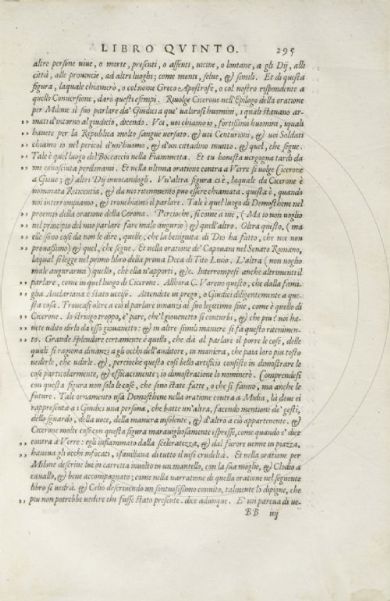 LIBRO QVINTO. 295
altre persone uiue, o morte, presenti, o assenti, uicine, o lontane, a gli Dij, alle
città, alle prouincie, ad altri luoghi; come monti, selue, & simili. Et di questa
figura, laquale chiamerò, o col nome Greco Apostrofe, o col nostro rispondente a
quello Conuersione, darò questi esempi. Riuolge Cicerone nell'Epilogo della oratione
per Milone il suo parlare da' Giudici a que' ualorosi huomini, i quali stauano ar-
mati d'intorno al giudicio, dicendo. Voi, uoi chiamo io, fortissimi huomini, iquali
hauete per la Republica molto sangue uersato, & uoi Centurioni, & uoi Soldati
chiamo io nel pericol d'un'huomo, & d'un cittadino inuitto, & quel, che segue.
Tale è quel luogo del Boccaccio nella Fiammetta. Et tu honesta uergogna tardi da
me conosciuta perdonami. Et nella ultima oratione contra a Verre uolge Cicerone
a Gioue; & altri Dij inuocandogli. Vn'altra figura ci è, laquale da Cicerone è
nominata Reticentia, & da noi ritenimento può essere chiamata. questa è, quando
noi interrompiamo, & tronchiamo il parlare. Tale è quel luogo di Demosthene nel
proemio della oratione della Corona. Percioche, si come a me, (Ma io non uoglio
nel principio del mio parlare fare male augurio) & quell'altro. Oltra questo, (ma
elle sono cose da non le dire, quelle, che la benignità di Dio ha fatto, che noi non
prouassimo) & quel, che segue. Et nella oratione de' Capouani nel Senato Romano,
laqual si legge nel primo libro della prima Deca di Tito Liuio. L'altra (non uoglio
male augurarmi) quello, ch'ella n'apporti, &c. Interrompesi anche altrimenti il
parlare, come in quel luogo di Cicerone. Allhora C. Vareno questo, che dalla fami-
glia Anchariana è stato ucciso. Attendete in prego, o Giudici diligentemente a que-
sta cosa. Troncasi oltre a ciò il parlare innanzi al suo legitimo fine, come è quello di
Cicerone. Io struggo troppo, e' pare, che'l giouenetto si conturbi, & che piu? uoi ha-
uete udito dirlo da esso giouanetto: & in altre simili maniere si fa questo ritenimen-
to. Grande splendore certamente è quello, che dà al parlare il porre le cose, delle
quali si ragiona dinanzi a gli occhi dell'auditore, in maniera, che paia loro piu tosto
uederle, che udirle. &, percioche questa così bello artificio consiste in dimostrare le
cose particolarmente, & efficacemente; io dimostratione la nominerò. Comprendesi
con questa figura non solo le cose, che sono state fatte, o che si fanno, ma anche le
future. Tale ornamento usa Demosthene nella oratione contra a Midia, là doue ei
rappresenta a i Giudici una persona, che batte un'altra, facendo mentione de' gesti,
dello sguardo, della uoce, della maniera insolente, & d'altro a ciò appartenente. &
Cicerone molte cose con questa figura marauigliosamente espresse, come quando e' dice
contra a Verre: egli infiammato dalla sceleratezza, & dal furore uenne in piazza,
haueua gli occhi infocati, sfauillaua di tutto il uiso crudeltà. Et nella oratione per
Milone descriue lui in carretta inuolto in un mantello, con la sua moglie, & Clodio a
cauallo, & bene accompagnato; come nella narratione di quella oratione nel seguente
libro si uedrà. & Celio descriuendo un suntuosissimo conuito, talmente lo dipigne, che
piu non potrebbe uedere chi fusse stato presente. dice adunque. E' mi pareua di ue-
BB iij